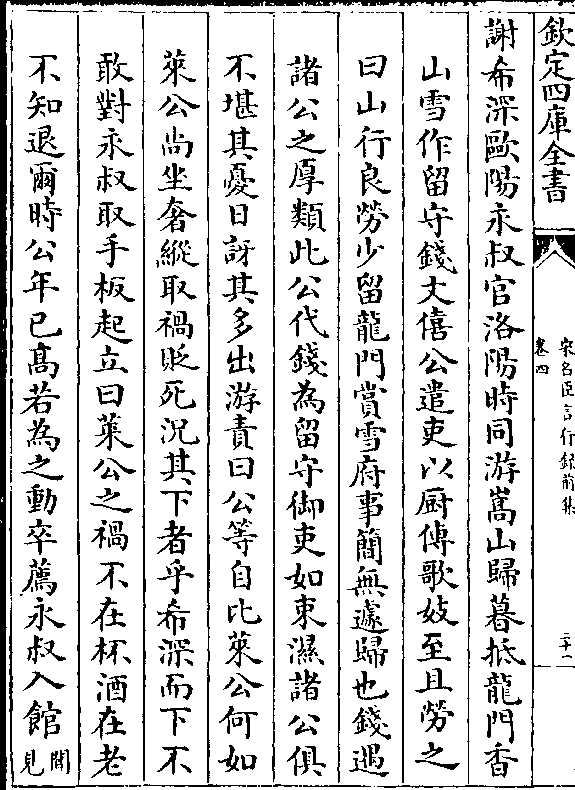 欽定四庫全書
宋名臣言行録前集
卷四
二十一
謝希深歐陽永叔官洛陽時同游嵩山歸暮抵龍門香
山雪作留守錢文僖公遣吏以厨傳歌妓至且勞之
曰山行良勞少留龍門賞雪府事簡無遽歸也錢遇
諸公之厚類此公代錢為留守御吏如束濕諸公俱
不堪其憂日訝其多出游責曰公等自比萊公何如
萊公尚坐奢縱取禍貶死况其下者乎希深而下不
敢對永叔取手板起立曰萊公之禍不在杯酒在老
不知退爾時公年已髙若為之動卒薦永叔入館聞
見